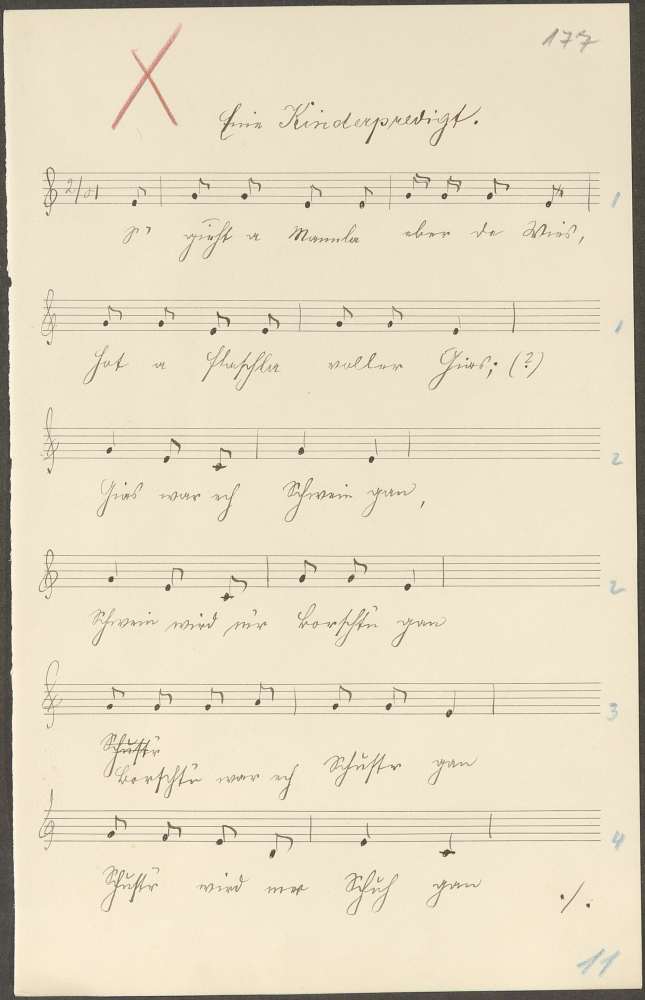 177
Eine Kinderpredigt.
2/4
1
S' gieht a Mannla eber de Wies,
1
Hot a Flaschla voller Gies; (?)
2
Gies war ech Schwein gan,
2
Schwein wird mir Borschtn gan
3
Schustr
Borschtn war ech Schustr gan
4
Schustr wird mer Schuh gan
./.
11